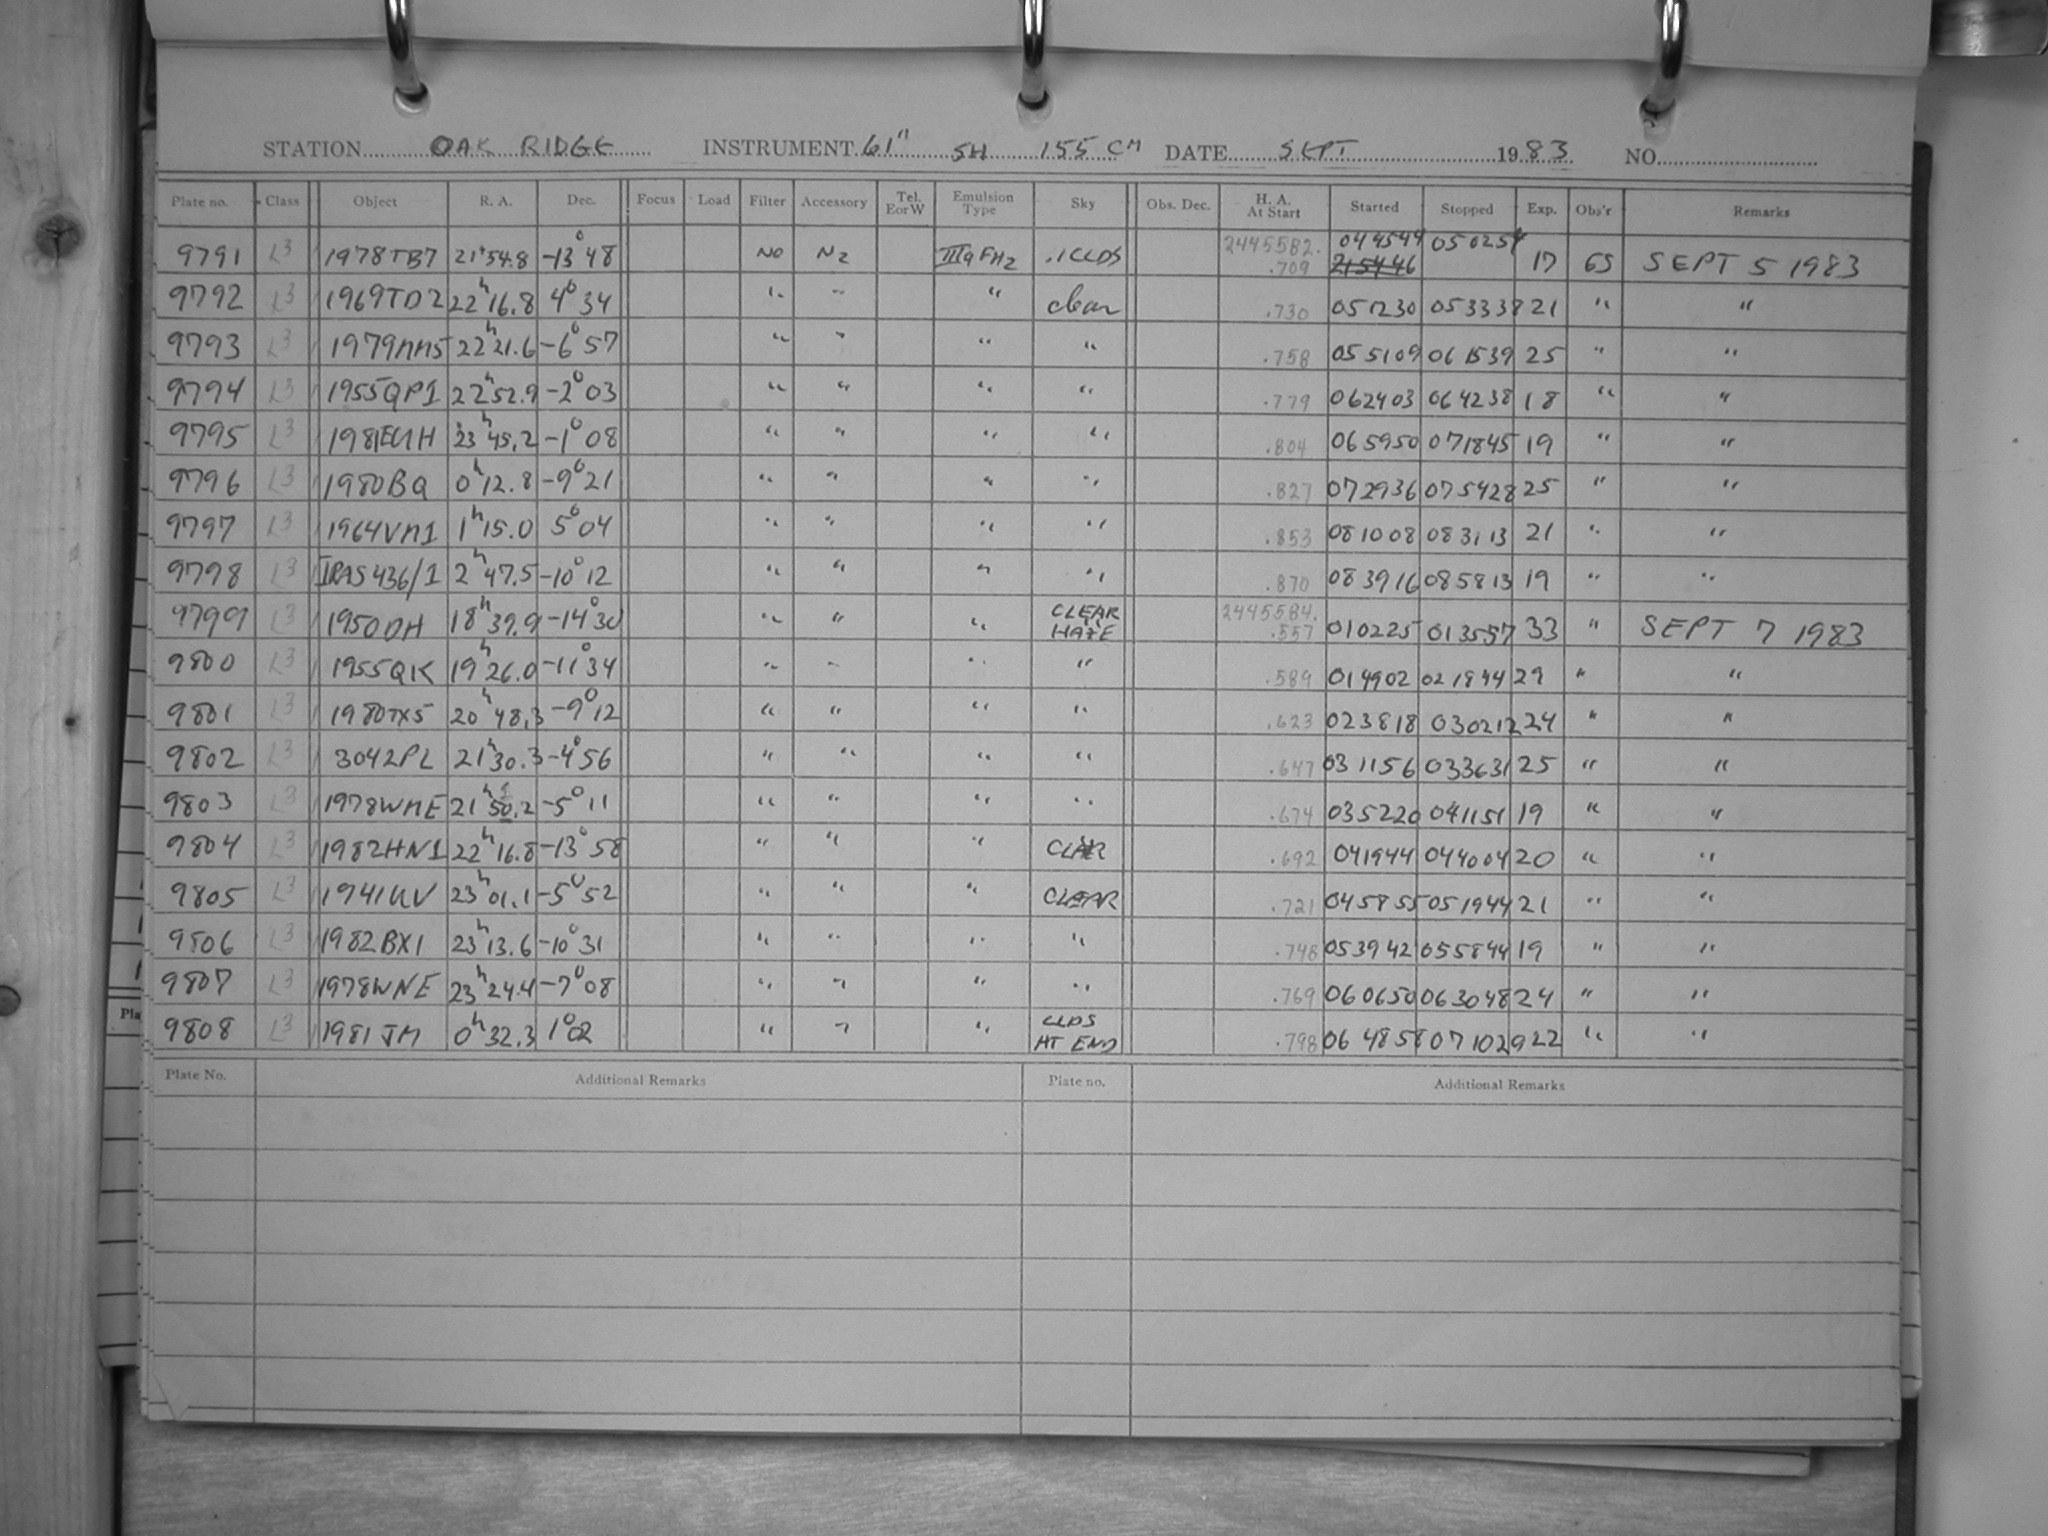 STATION OAK RIDGE INSTRUMENT 61" SH 155 CM DATE SEPT 1983 NO.
Plate no. Class Object R. A. Dec. Focus Load Filter Accessory Tel. EorW Emulsion Type Sky Obs. Dec. H. A. At Start Started Stopped Exp. Obs'r Remarks
9791 L3 1978TB7 21h54.8 -13°48 NO N2 IIIaFH2 .1CLDS 2445582. .709 044544 050254 17 GS SEPT 5 1983
9792 L3 1969TD2 22h16.8 4°34 " " " clear .730 051230 053338 21 " "
9793 L3 1979MM5 22h21.6 -6°57 " " " " .758 055109 061539 25 " "
9794 L3 1955QP1 22h52.9 -2°03 " " " " .779 062403 064238 18 " "
9795 L3 1981EUH 23h45.2 -1°08 " " " " .804 065950 071845 19 " "
9796 L3 1980BQ 0h12.8 -9°21 " " " " .827 072936 075428 25 " "
9797 L3 1964VM1 1h15.0 5°04 " " " " .853 081008 083113 21 " "
9798 L3 IRAS436/1 2h47.5 -10°12 " " " " .870 083916 085813 19 " "
9799 L3 1950DH 18h39.9 -14°30 " " " CLEAR HAZE 2445584. .557 010225 013557 33 " SEPT 7 1983
9800 L3 1955QK 19h26.0 -11°34 " " " " .589 014902 021844 29 " "
9801 L3 1980TX5 20h48.3 -9°12 " " " " .623 023818 030212 24 " "
9802 L3 3042PL 21h30.3 -4°56 " " " " .647 031156 033631 25 " "
9803 L3 1978WME 21h50.2 -5°11 " " " " .674 035220 041151 19 " "
9804 L3 1982HN1 22h16.8 -13°58 " " " CLEAR .692 041944 044004 20 " "
9805 L3 1941UV 23h01.1 -5°52 " " " CLEAR .721 045855 051944 21 " "
9806 L3 1982BX1 23h13.6 -10°31 " " " " .748 053942 055844 19 " "
9807 L3 1978WNE 23h24.4 -7°08 " " " " .769 060650 063048 24 " "
9808 L3 1981JM 0h32.3 1°02 " " " CLDS AT END .798 064858 071029 22 " "
Plate No. Additional Remarks Plate no. Additional Remarks